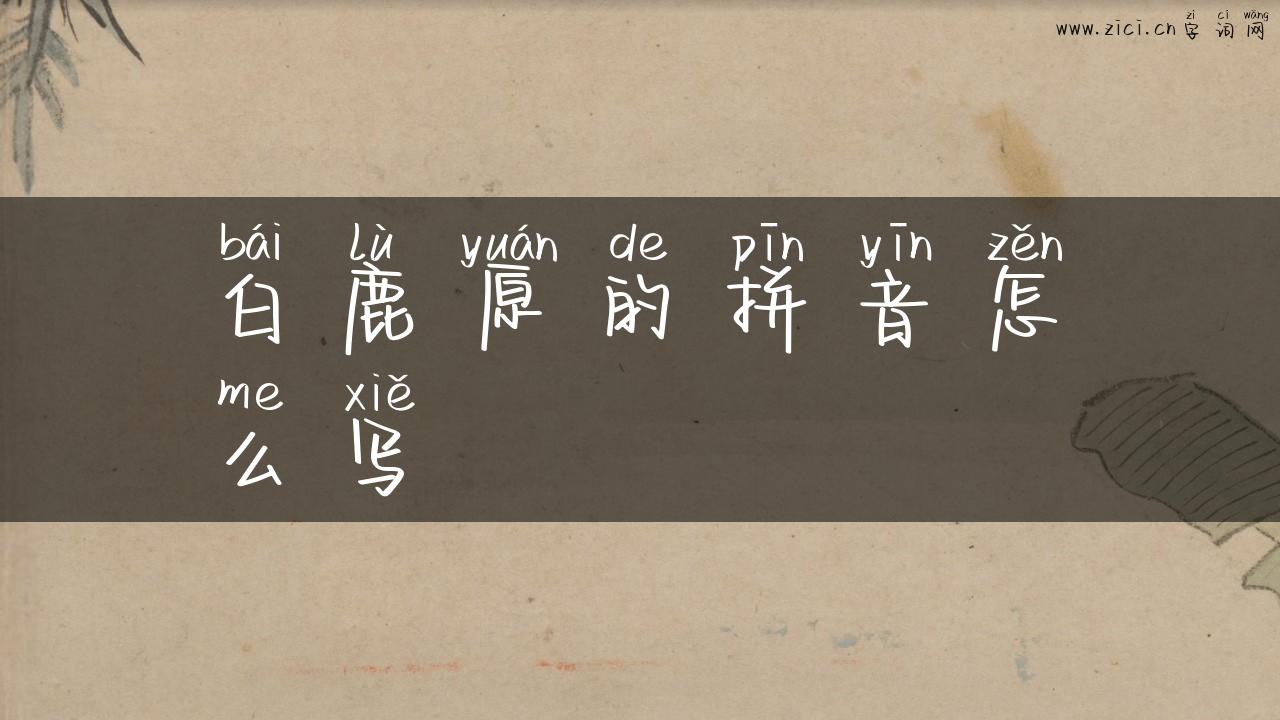 zì cí wǎng
www.zici.cn 字词网
bái lù yuán de pīn yīn zěn
白鹿原的拼音怎
me xiě
么写